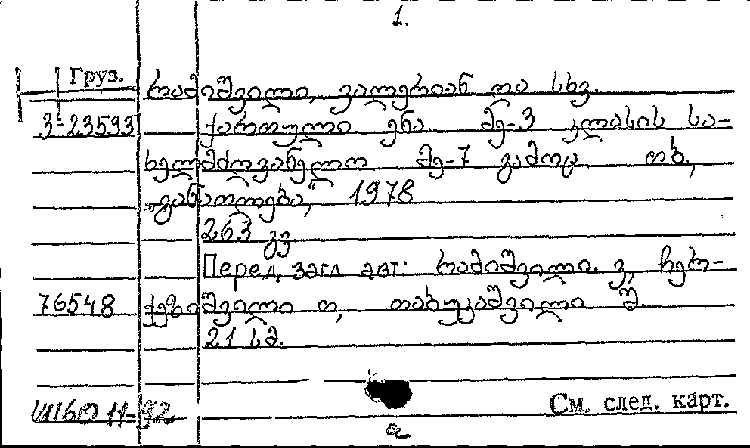 1.
Груз.
რამიშვილი, ვალერიან და სხვ.
3-23593 ქართული ენა მე-3 კლასის სა-
ხელმძღვანელო მე-7 გამოც. თბ.,
„განათლება", 1978
263 გვ
Перед загл авт: რამიშვილი. ვ, ჩებო-
76548 შვილი თ, შ.
21 სმ.
См. след. карт.